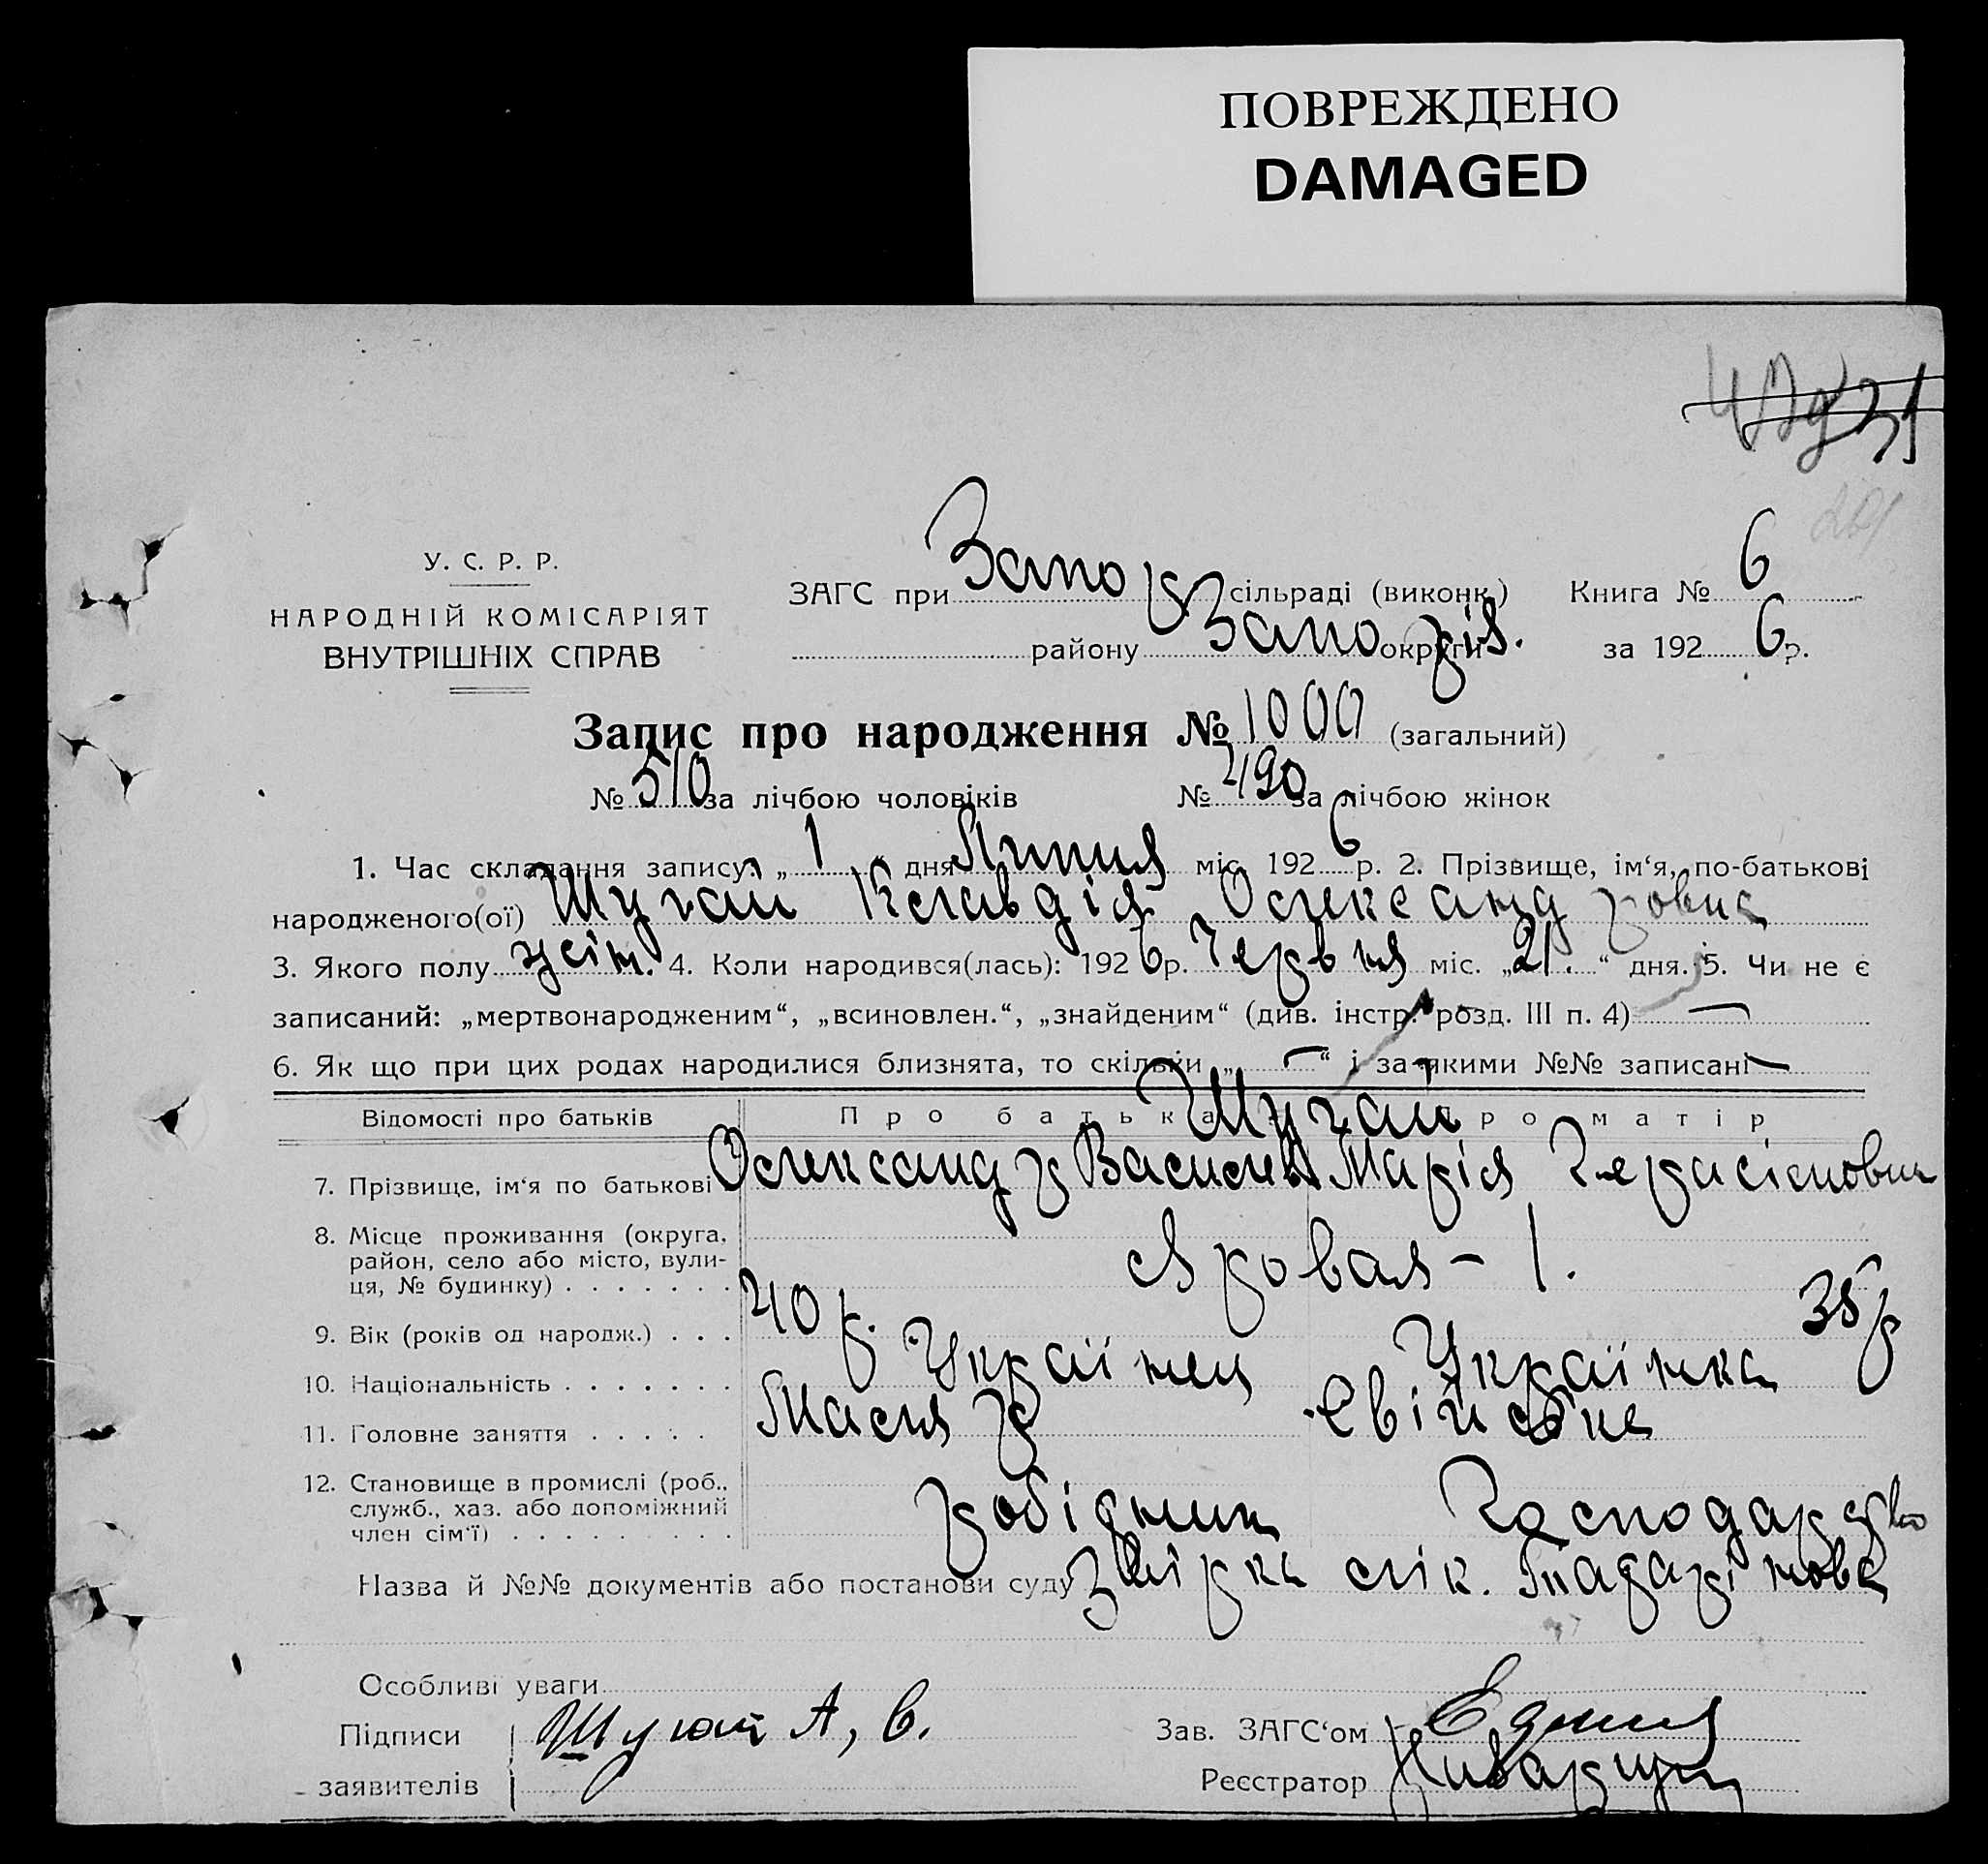 ПОВРЕЖДЕНО
DAMAGED
У. С. Р. Р.
НАРОДНІЙ КОМІСАРІЯТ
ВНУТРІШНІХ СПРАВ
ЗАГС при Запор сільраді (виконк.) Книга № 6
району Запоріз. округи за 1926 р.
Запис про народження № 1000 (загальний)
№ 510 за лічбою чоловіків № 490 за лічбою жінок
1. Час складання запису: „1“ дня Липня міс. 1926 р. 2. Прізвище, ім‘я, по-батькові
народженого(ої) Шугай Клавдія Олександровна
3. Якого полу жін. 4. Коли народився(лась): 1926 р. Червня міс. „21.“ дня. 5. Чи не є
записаний: „мертвонародженим“, „всиновлен.“, „знайденим“ (див. інстр. розд. III п. 4) —
6. Як що при цих родах народилися близнята, то скільки „—“ і за якими №№ записані —
Відомості про батьків Про батька Про матір
Шугай
7. Прізвище, ім‘я по батькові Олександр Васильев Марія Герасімовна
8. Місце проживання (округа, район, село або місто, вулиця, № будинку) Яровая - 1.
9. Вік (років од народж.) 40 р. 35 р
10. Національність Українец Українка
11. Головне заняття Маляр Свійське
12. Становище в промислі (роб., служб., хаз. або допоміжний член сім‘ї) робідник Господарство
Назва й №№ документів або постанови суду лік.
Особливі уваги
Підписи Шугай А, В. Зав. ЗАГС‘ом
заявителів Реєстратор